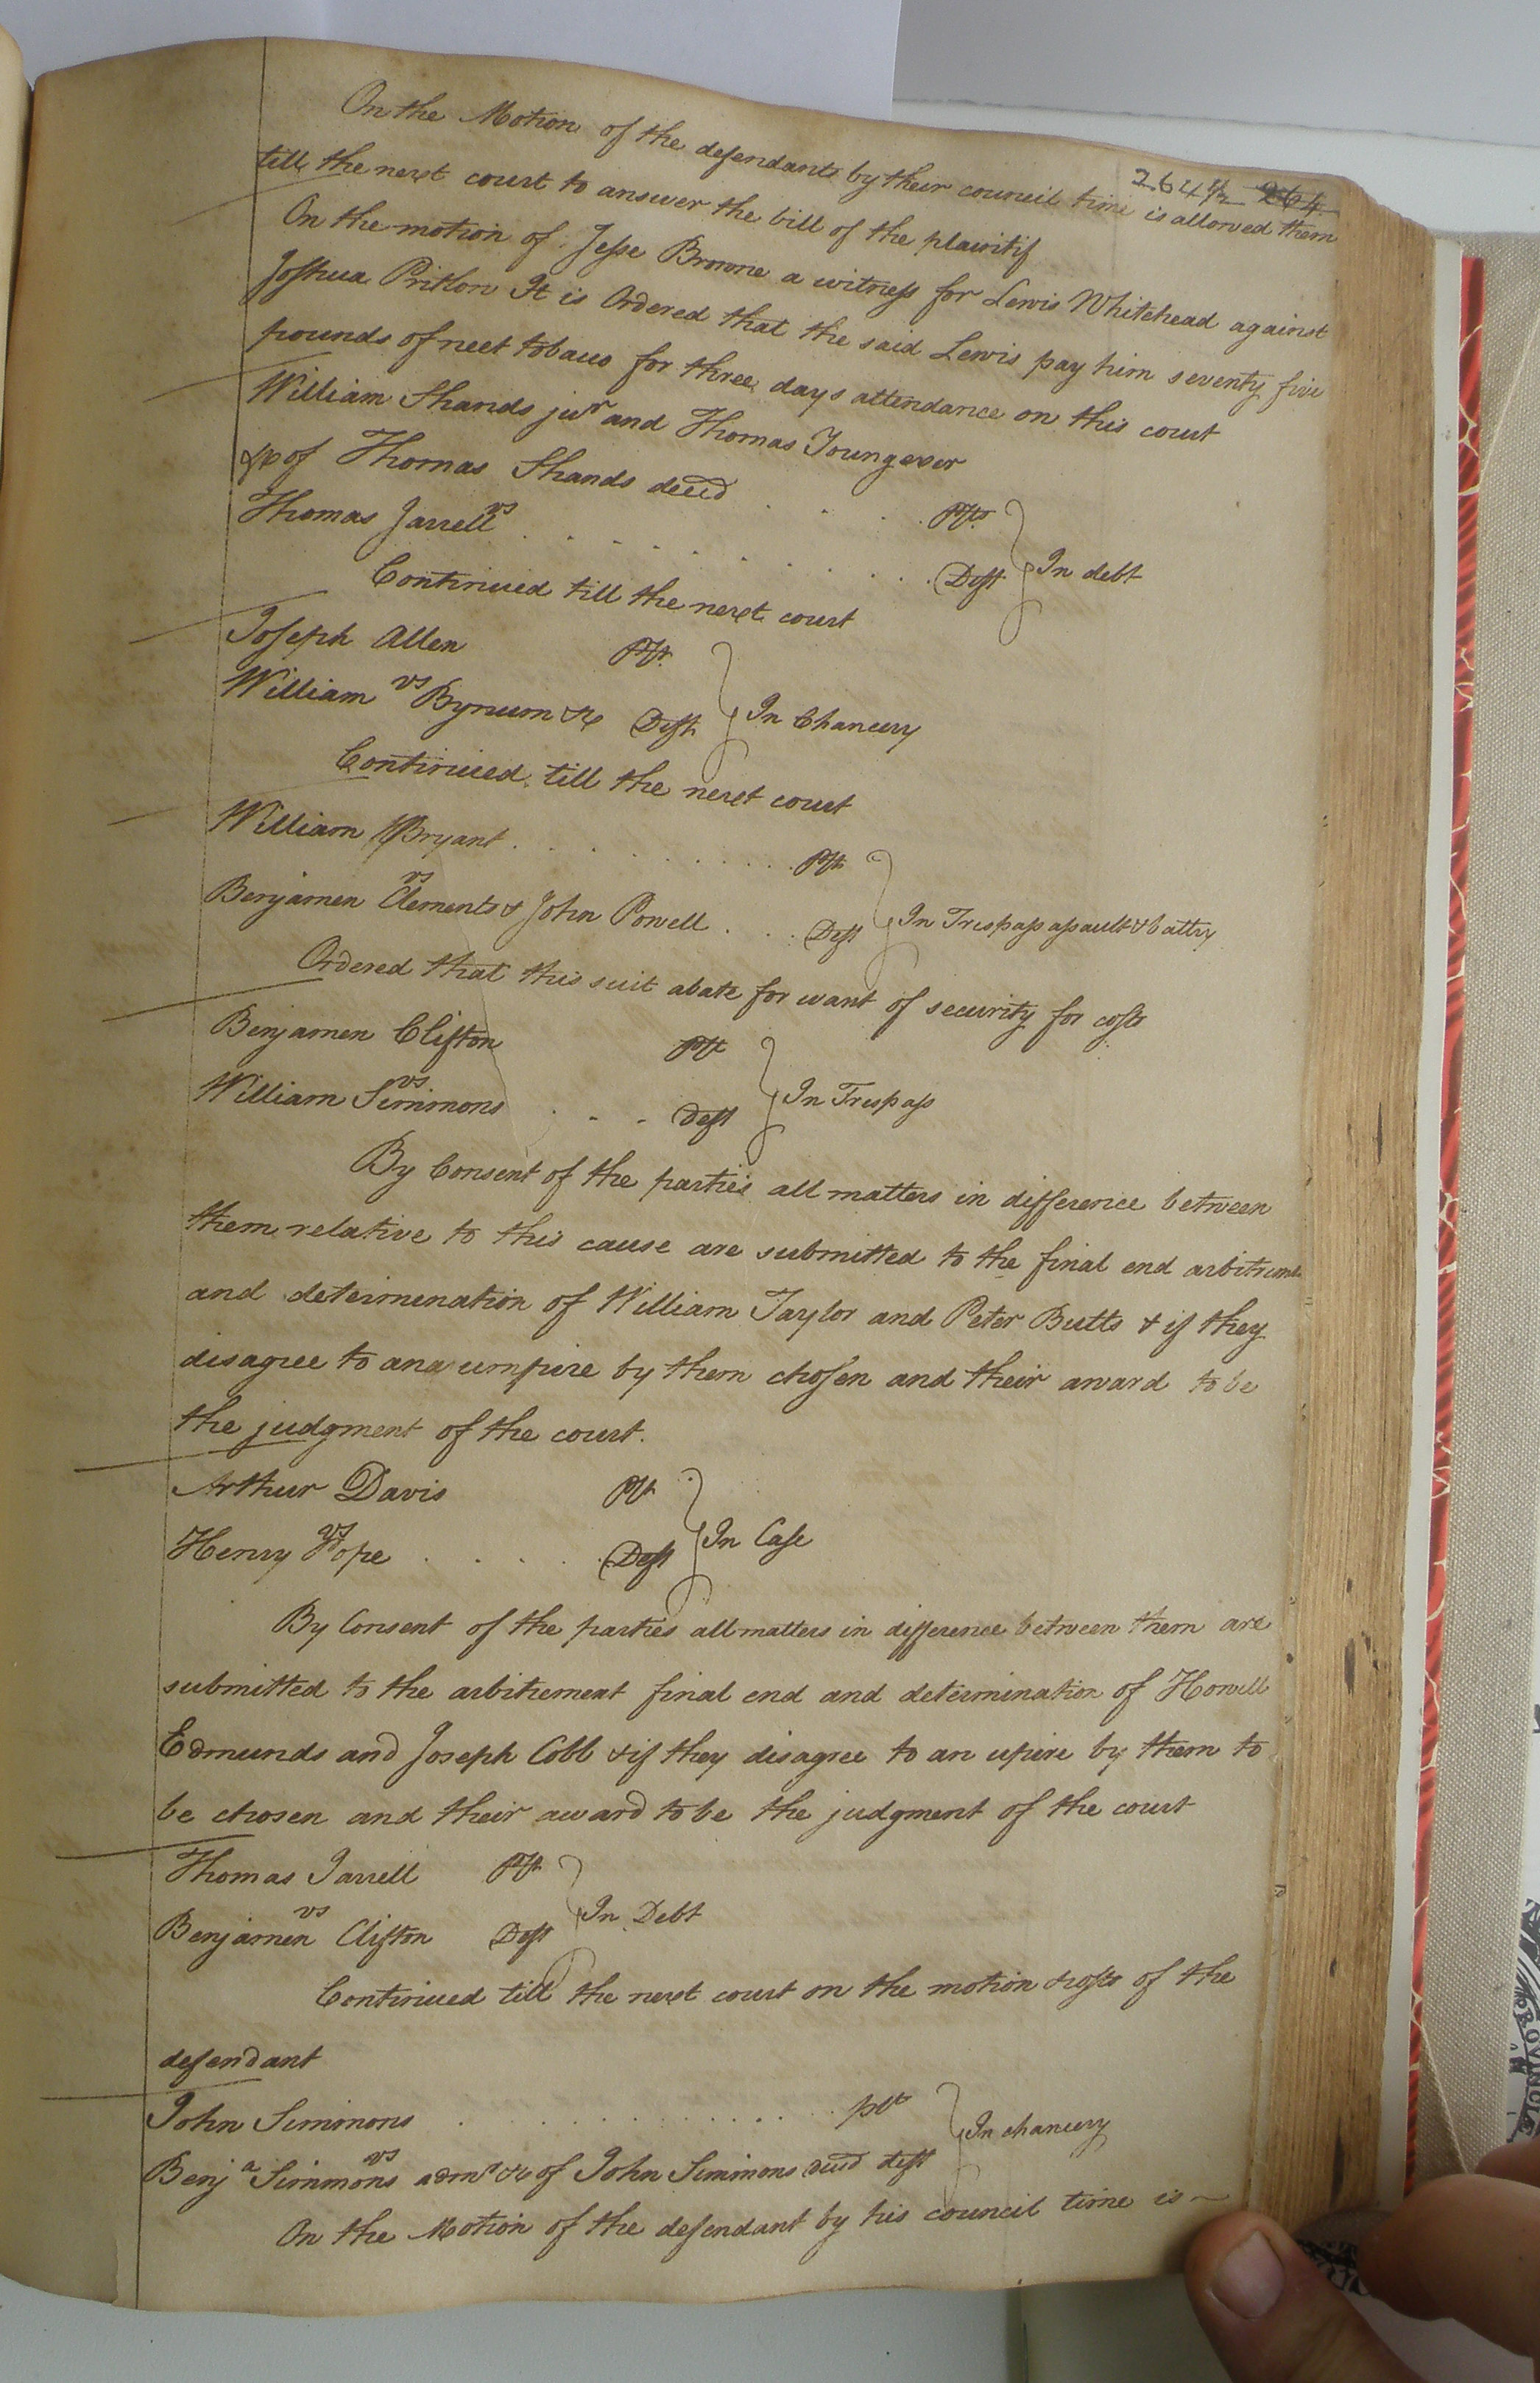 264½ 264
On the Motion of the defendants by their council time is allowed them
till the next court to answer the bill of the plaintif
On the motion of Jesse Browne a witness for Lewis Whitehead against
Joshua Pritlon It is Ordered that the said Lewis pay him seventy five
pounds of neet tobacco for three days attendance on this court
William Shands junr and Thomas Young exor
&c of Thomas Shands decd . . . . Plts
vs
Thomas Jarrell . . . . . . . . . Deft } In debt
Continued till the next court
Joseph Allen Plt
vs
William Bynum &c Deft } In Chancery
Continued till the next court
William Bryant . . . . . . . . Plt
vs
Benjamen Clements & John Powell . . . Deft } In Trespass assault & battry
Ordered that this suit abate for want of security for costs
Benjamen Clifton Plt
vs
William Simmons . . . Deft } In Trespass
By Consent of the parties all matters in difference between
them relative to this cause are submitted to the final end arbitrement
and determination of William Taylor and Peter Butts & if they
disagree to ana umpire by them chosen and their award to be
the judgment of the court.
Arthur Davis Plt
vs
Henry Pope . . . . Deft } In Case
By Consent of the parties all matters in difference between them are
submitted to the arbitrement final end and determination of Howell
Edmunds and Joseph Cobb & if they disagree to an upire by them to
be chosen and their award to be the judgment of the court
Thomas Jarrell Plt
vs
Benjamen Clifton Deft } In Debt
Continued till the next court on the motion & costs of the
defendant
John Simmons . . . . . . . . . plt
vs
Benja Simmons admr &c of John Simmons decd deft } In chancery
On the Motion of the defendant by his council time is ~